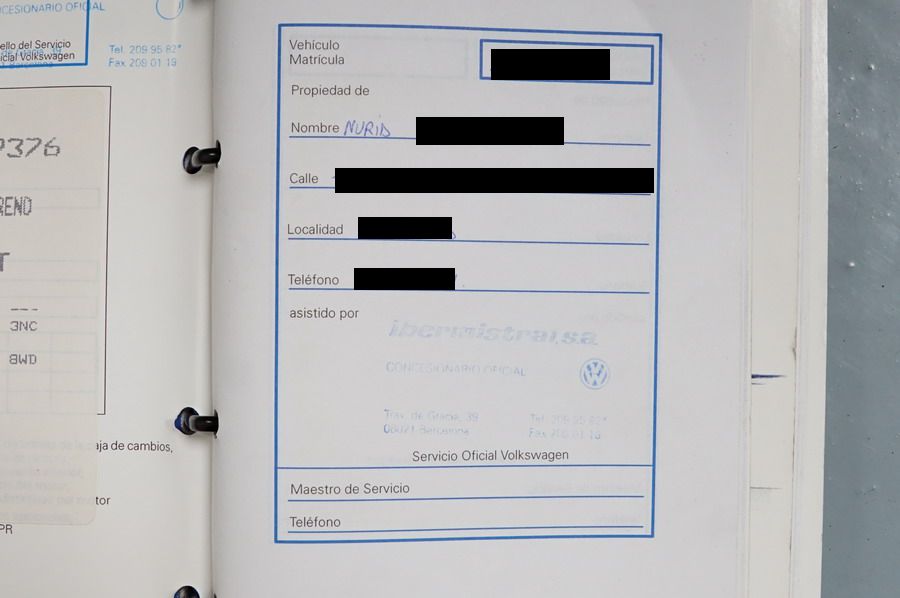 CESIONARIO OFICIAL
ello del Servicio
icial Volkswagen
Tel. 209 95 82*
Fax 209 01 19
376
RENO
T
---
3NC
8WD
aja de cambios,
tor
PR
Vehículo
Matrícula
Propiedad de
Nombre NURIA
Calle
Localidad
Teléfono
asistido por
ibermistral, s.a
CONCESIONARIO OFICIAL
Trav. de Gracia, 39
08021 Barcelona
Tel. 209 95 82*
Fax 209 01 19
Servicio Oficial Volkswagen
Maestro de Servicio
Teléfono